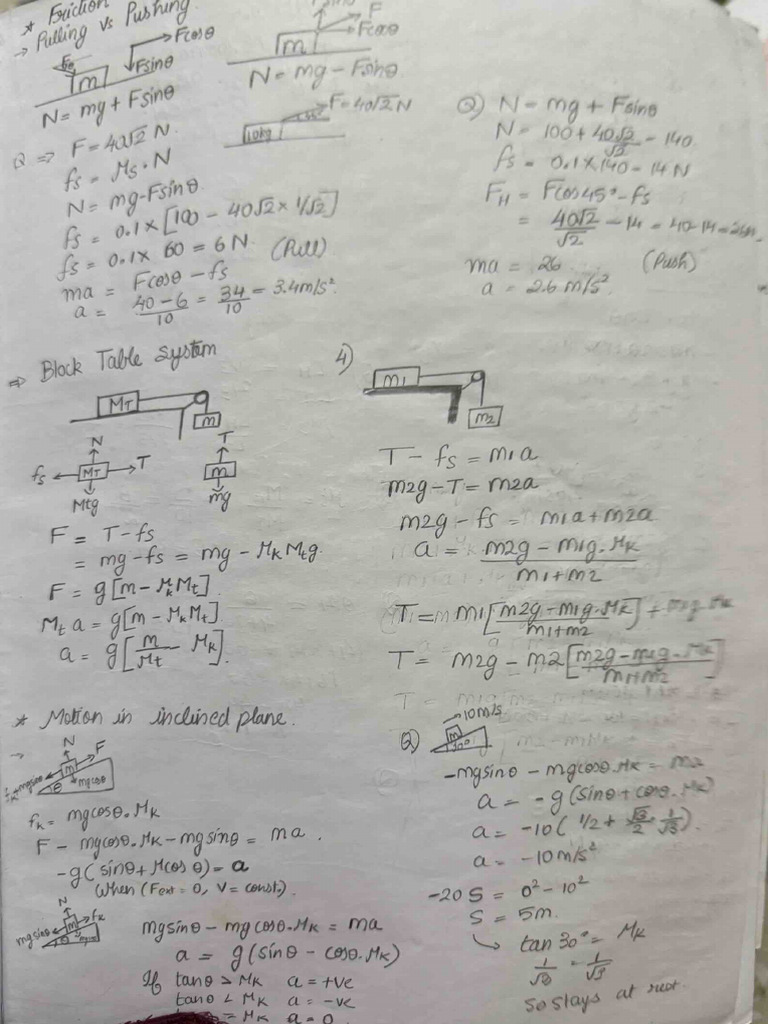 * Friction
→ Pulling vs Pushing.
Fcosθ
Fsinθ
m
N = mg + Fsinθ
F
Fcosθ
m
N = mg - Fsinθ
F = 40√2 N
10kg
Q ⇒ F = 40√2 N.
fs = μs · N
N = mg - Fsinθ.
fs = 0.1 × [100 - 40√2 × 1/√2]
fs = 0.1 × 60 = 6 N. (Pull)
ma = Fcosθ - fs
a = 40 - 6 / 10 = 34 / 10 = 3.4 m/s²
Q) N = mg + Fsinθ
N = 100 + 40√2 / √2 = 140
fs = 0.1 × 140 = 14 N
FH = Fcos45° - fs
= 40√2 / √2 - 14 = 40 - 14 = 26N
ma = 26 (Push)
a = 2.6 m/s²
⇒ Block Table system
MT
m
N
fs MT T
Mtg
T
m
mg
F = T - fs
= mg - fs = mg - μk Mt g.
F = g[m - μk Mt].
Mt a = g[m - μk Mt].
a = g[m / Mt - μk].
4)
m1
m2
T - fs = m1a
m2g - T = m2a
m2g - fs = m1a + m2a
a = m2g - m1g·μk / m1 + m2
T = m1[m2g - m1g·μk / m1 + m2] +
T = m2g - m2[m2g - m1g·μk / m1 + m2]
* Motion in inclined plane.
→
N
F
m
θ
mgcosθ
fk + mgsinθ
fk = mgcosθ · μk
F - mgcosθ·μk - mgsinθ = ma.
-g(sinθ + μcosθ) = a
When (Fext = 0, V = const.)
N
fk
m
mgsinθ
θ
mgsinθ - mgcosθ·μk = ma
a = g(sinθ - cosθ·μk)
If tanθ > μk a = +ve
tanθ < μk a = -ve
= μk a = 0
Q)
→ 10 m/s
m
30°
-mgsinθ - mgcosθ·μk = ma
a = -g(sinθ + cosθ·μk)
a = -10(1/2 + √3/2 · 1/√3).
a = -10 m/s²
-20 S = 0² - 10²
S = 5m.
↳ tan 30° = μk
1/√3 = 1/√3
So stays at rest.